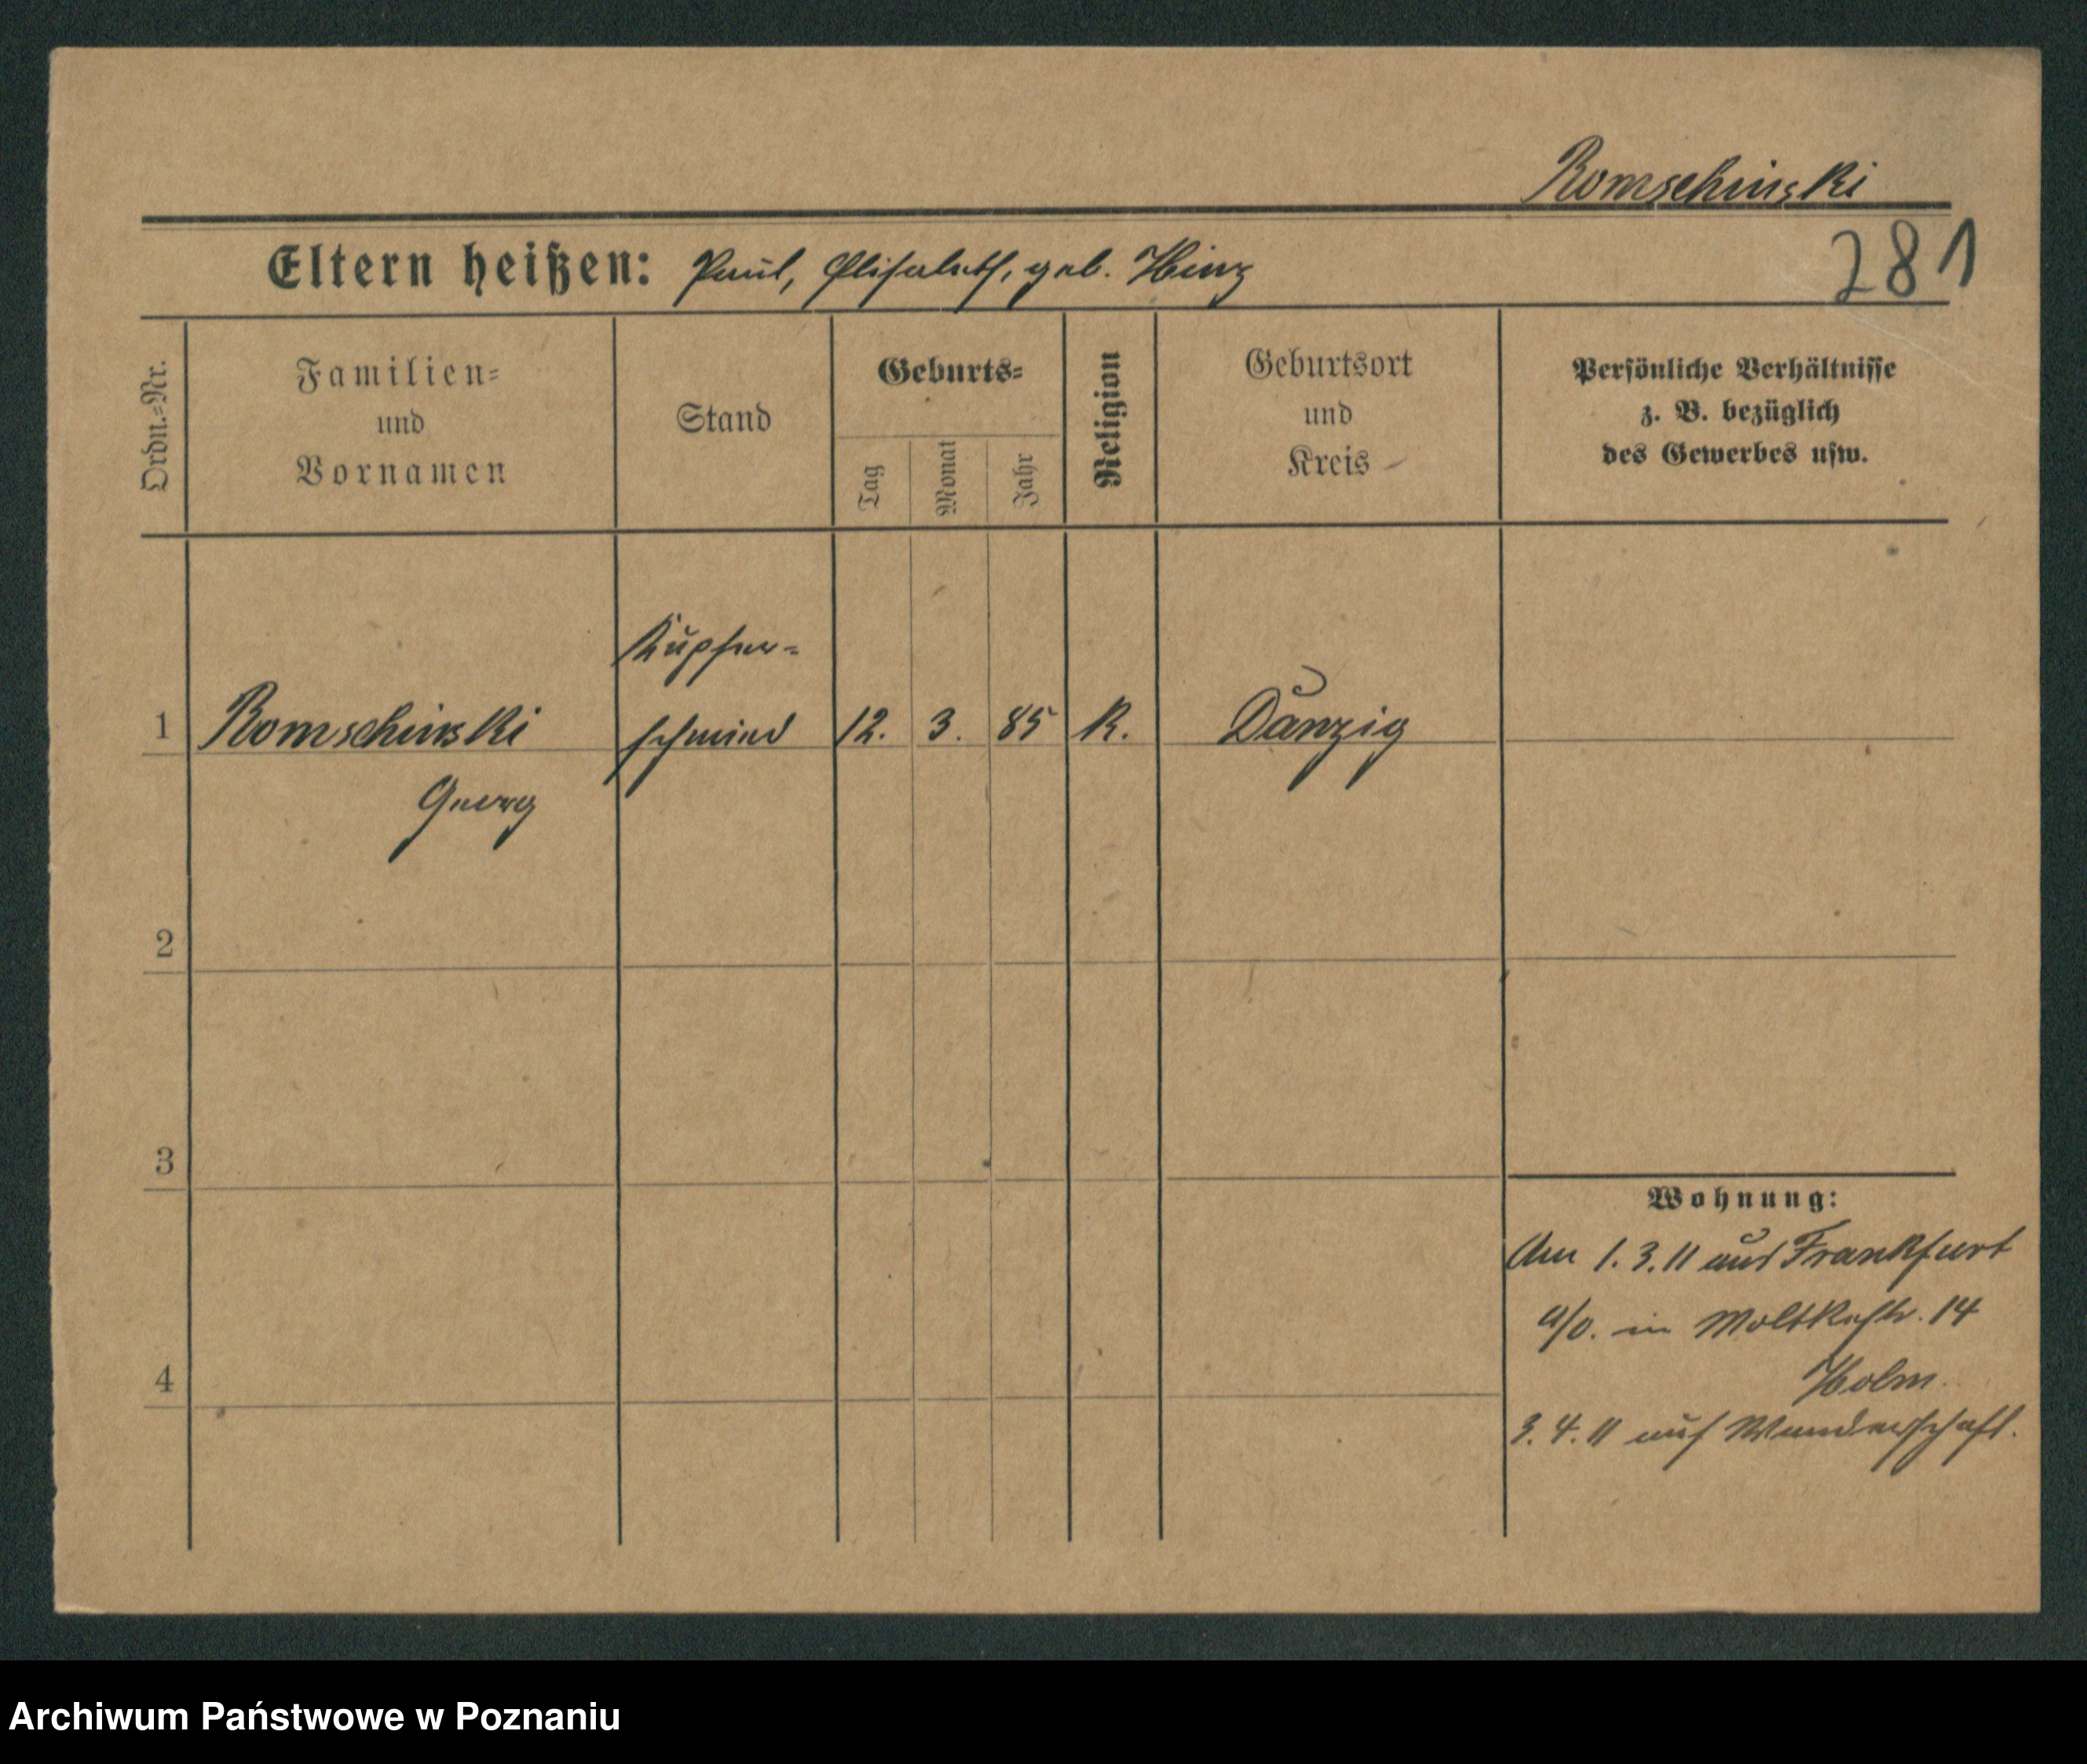 Romschinski
Eltern heißen: Paul, Elisabeth, geb. Hinz
281
Ordn.=Nr.
Familien=
und
Vornamen
Stand
Geburts=
Tag
Monat
Jahr
Religion
Geburtsort
und
Kreis
Persönliche Verhältnisse
z. B. bezüglich
des Gewerbes usw.
Kupfer=
1 Romschinski schmied 12. 3. 85 K. Danzig
Georg
2
3
4
Wohnung:
Am 1.3.11 aus Frankfurt
a/O. in Moltkestr. 14
Holm.
3.4.11 auf Wanderschaft.
Archiwum Państwowe w Poznaniu